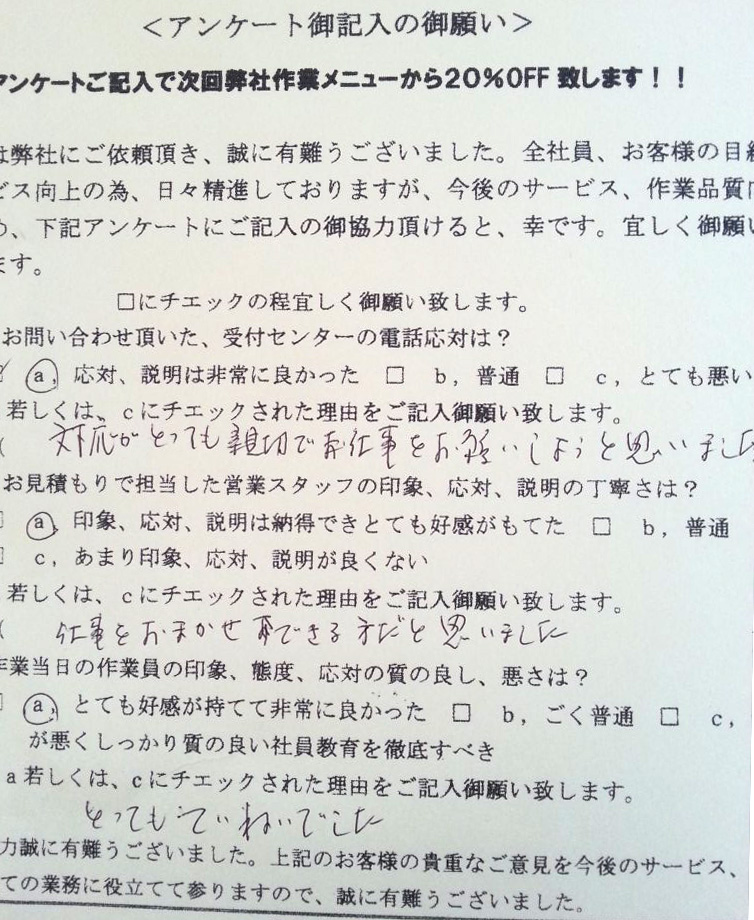 ＜アンケート御記入の御願い＞
アンケートご記入で次回弊社作業メニューから20%OFF 致します！！
は弊社にご依頼頂き、誠に有難うございました。全社員、お客様の目線
ビス向上の為、日々精進しておりますが、今後のサービス、作業品質向
め、下記アンケートにご記入の御協力頂けると、幸です。宜しく御願い
ます。
□にチェックの程宜しく御願い致します。
お問い合わせ頂いた、受付センターの電話応対は？
a, 応対、説明は非常に良かった □ b，普通 □ c，とても悪い
若しくは、cにチェックされた理由をご記入御願い致します。
( 対応がとっても親切でお仕事をお願いしようと思いました
お見積もりで担当した営業スタッフの印象、応対、説明の丁寧さは？
□ a, 印象、応対、説明は納得できとても好感がもてた □ b，普通
□ c，あまり印象、応対、説明が良くない
若しくは、cにチェックされた理由をご記入御願い致します。
( 仕事をおまかせできる方だと思いました
作業当日の作業員の印象、態度、応対の質の良し、悪さは？
□ a, とても好感が持てて非常に良かった □ b，ごく普通 □ c，
が悪くしっかり質の良い社員教育を徹底すべき
a若しくは、cにチェックされた理由をご記入御願い致します。
とってもていねいでした
力誠に有難うございました。上記のお客様の貴重なご意見を今後のサービス、
ての業務に役立てて参りますので、誠に有難うございました。